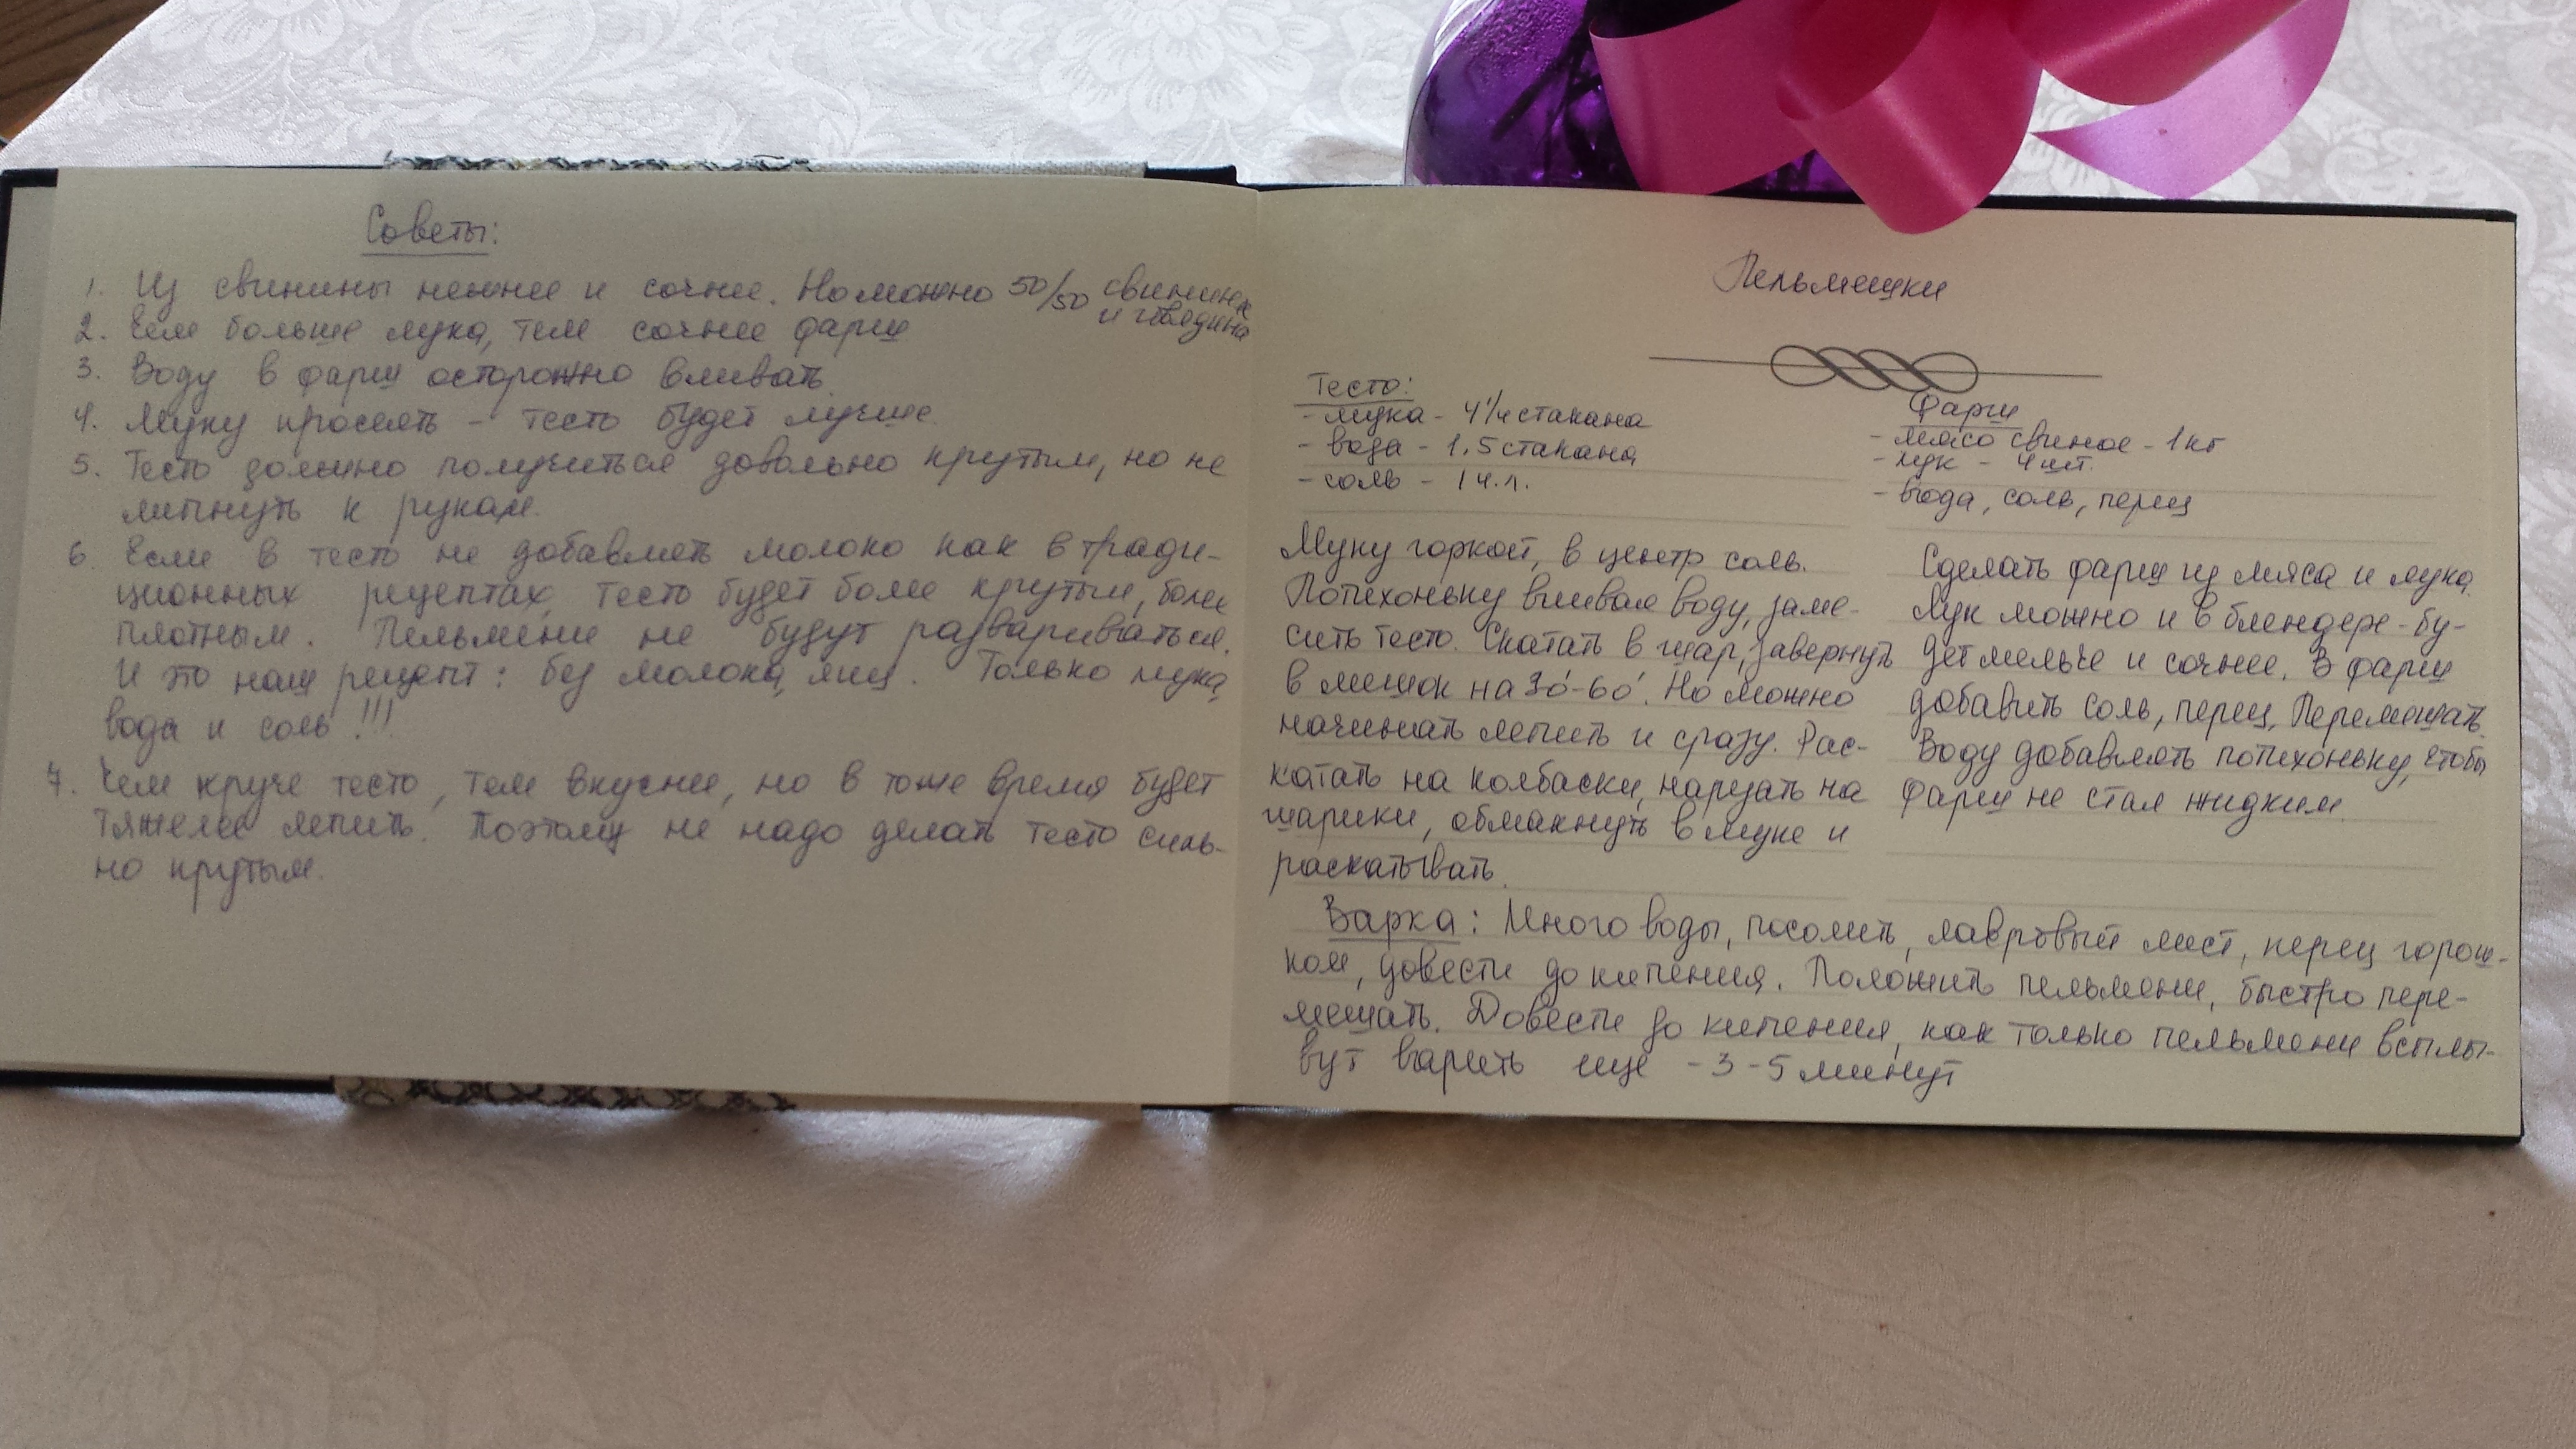 Советы:
1. Из свинины нежнее и сочнее. Но можно 50/50 свинина
и говядина
2. Чем больше лука, тем сочнее фарш
3. Воду в фарш осторожно вливать.
4. Муку просеять - тесто будет лучше.
5. Тесто должно получиться довольно крутым, но не
липнуть к рукам.
6. Если в тесто не добавлять молоко как в тради-
ционных рецептах, тесто будет более крутым, более
плотным. Пельмени не будут развариваться.
И это наш рецепт: без молока, яиц. Только мука,
вода и соль!!!
7. Чем круче тесто, тем вкуснее, но в тоже время будет
тяжелее лепить. Поэтому не надо делать тесто силь-
но крутым.
Пельмешки
Тесто:
- мука - 4 1/4 стакана
- вода - 1,5 стакана
- соль - 1 ч.л.
Муку горкой, в центр соль.
Потихоньку вливая воду, заме-
сить тесто. Скатать в шар, завернуть
в мешок на 30'-60'. Но можно
начинать лепить и сразу. Рас-
катать на колбаски, нарезать на
шарики, обмакнуть в муке и
раскатывать.
Фарш
- мясо свиное - 1 кг
- лук - 4 шт.
- вода, соль, перец
Сделать фарш из мяса и лука.
Лук можно и в блендере - бу-
дет мельче и сочнее. В фарш
добавить соль, перец. Перемешать.
Воду добавлять потихоньку, чтобы
фарш не стал жидким.
Варка: Много воды, посолить, лавровый лист, перец горош-
ком, довести до кипения. Положить пельмени, быстро пере-
мешать. Довести до кипения, как только пельмени всплы-
вут варить еще - 3-5 минут